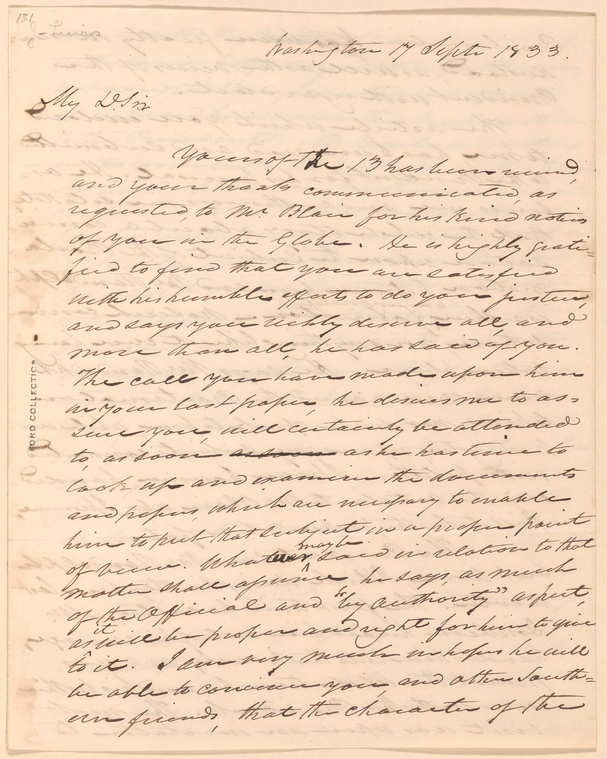 131
Washington 17 Septr 1833.
My D. Sir
Yours of the 13 has been recevd,
and your thanks communicated, as
requested, to Mr Blair for his kind notices
of you in the Globe. He is highly grati=
fied to find that you are satisfied
with his humble efforts to do you justice,
and says you richly deserve all, and
more than all, he has said of you.
The call you have made upon him
in your last paper, he desires me to as=
sure you, will certainly be attended
to, as soon as soon as he has time to
look up and examine the documents
and papers, which are necessary to enable
him to put that subject in a proper point
of view. Whatever may be said in relation to that
matter shall assume he says, as much
of the Official and "by authority" aspect,
as it will be proper and right for him to give
to it. I am very much in hopes he will
be able to convince you, and other South=
ern friends, that the character of the
FORD COLLECTION